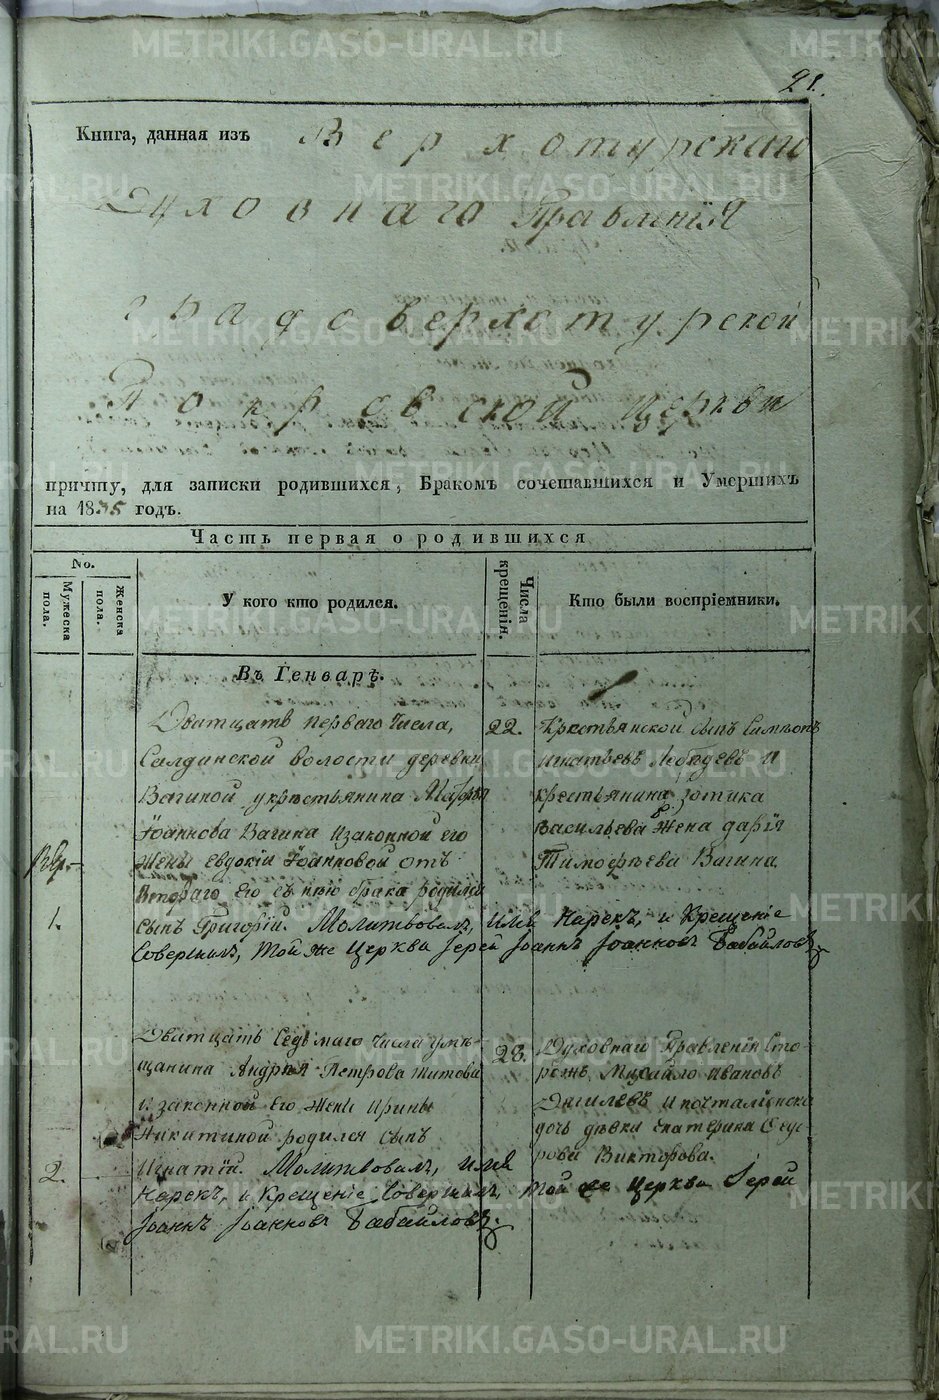 21.
Книга, данная изъ Верхотурскаго
Духовнаго Правленія
градоверхотурской
Покровской церкви
причту, для записки родившихся, Бракомъ сочетавшихся и Умершихъ
на 1835 годъ.
Часть первая о родившихся
No.
Мужеска пола.
Женска пола.
У кого кто родился.
Числа крещенія.
Кто были воспріемники.
Въ Генварѣ.
Дватцать перваго числа,
Салдинской волости деревни
Вагиной укрестьянина
Іоаннова Вагина изаконной его
жены евдокіи Іоанновой отъ
втораго его съ нею брака родился
1.
сынъ Григорій. Молитвовалъ, имя нарекъ, и Крещеніе
Совершилъ, той же Церкви Іерей Іоаннъ Іоанновъ Бабайловъ
22.
Крестьянской сынъ Симеонъ
игнатьевъ Лебедевъ и
крестьянина зотика
васильева жена дарія
Тимофѣева Вагина
Дватцать Седьмаго числа умѣ-
щанина Андрея Петрова Титова
изаконной его жены Ирины
Никитиной родился сынъ
2.
Игнатій. Молитвовалъ, имя
нарекъ, и Крещеніе Совершилъ, той же Церкви Іерей
Іоаннъ Іоанновъ Бабайловъ.
28.
Духовнаго Правленія Сто-
рожъ, Михайло ивановъ
и почталіонска
дочь дѣвка екатерина Ѳедо-
рова Викторова.
METRIKI.GASO-URAL.RU